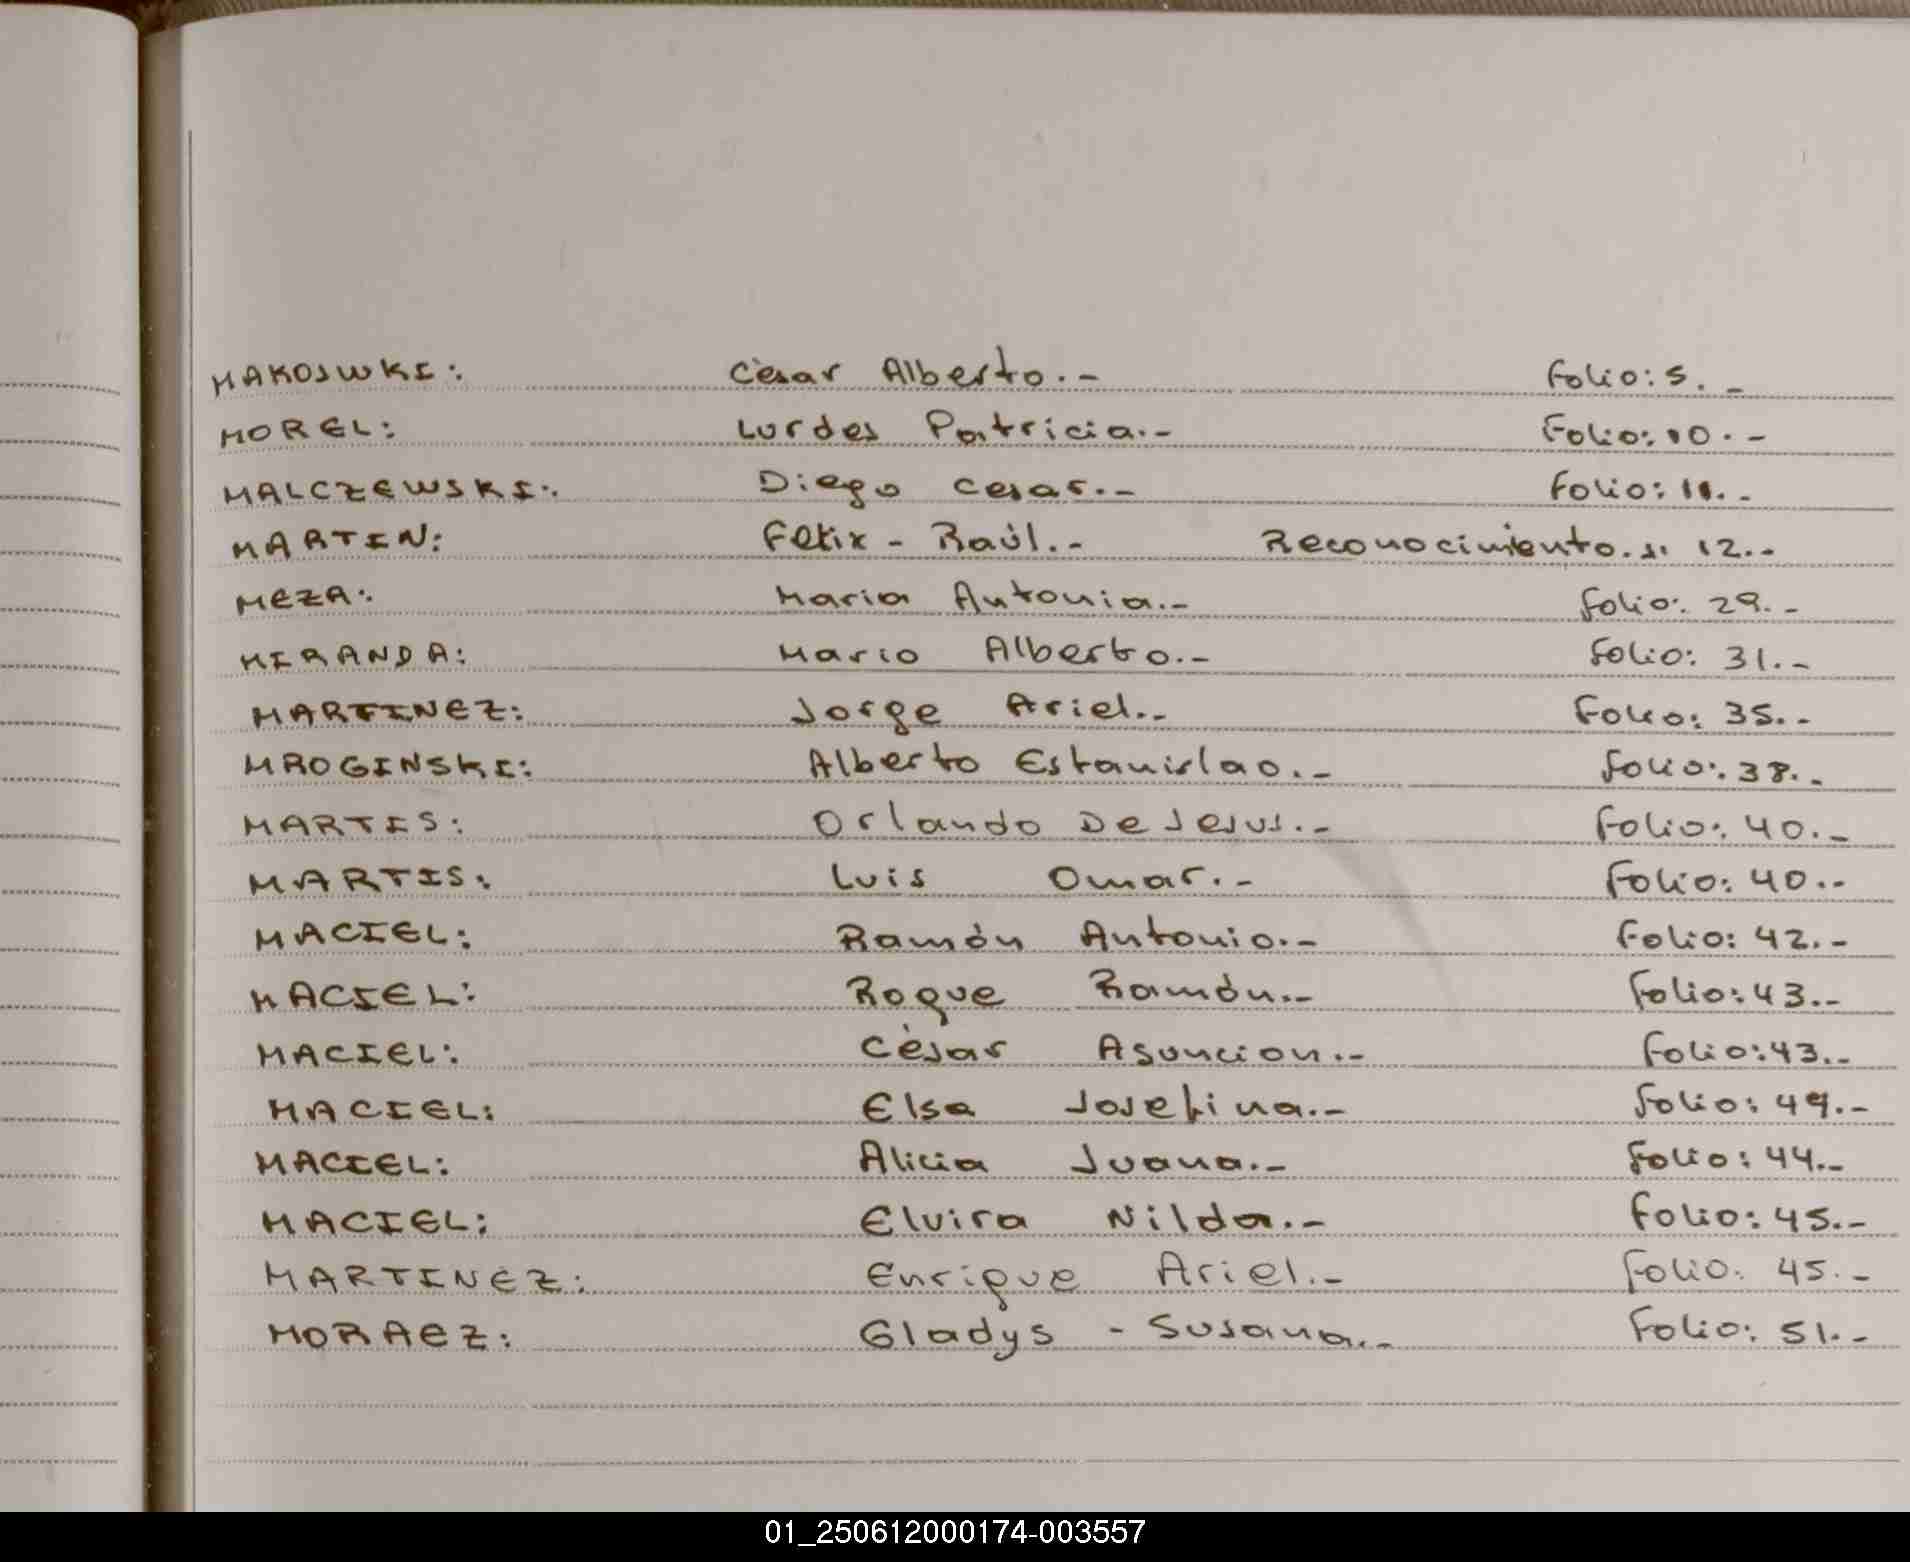 MAKOSWKI: Cèsar Alberto.- Folio: 5.-
MOREL: Lurdes Patricia.- Folio: 10.-
MALCZEWSKI: Diego Cesar.- Folio: 11.-
MARTIN: Felix - Raúl.- Reconocimiento. 12.-
MEZA: Maria Antonia.- Folio: 29.-
MIRANDA: Mario Alberto.- Folio: 31.-
MARTINEZ: Jorge Ariel.- Folio: 35.-
MROGINSKI: Alberto Estanislao.- Folio: 38.-
MARTIS: Orlando De Jesus.- Folio: 40.-
MARTIS: Luis Omar.- Folio: 40.-
MACIEL: Ramón Antonio.- Folio: 42.-
MACIEL: Roque Ramón.- Folio: 43.-
MACIEL: Cèsar Asuncion.- Folio: 43.-
MACIEL: Elsa Josefina.- Folio: 49.-
MACIEL: Alicia Juana.- Folio: 44.-
MACIEL: Elvira Nilda.- Folio: 45.-
MARTINEZ: Enrique Ariel.- Folio: 45.-
MORAEZ: Gladys - Susana.- Folio: 51.-
01_250612000174-003557